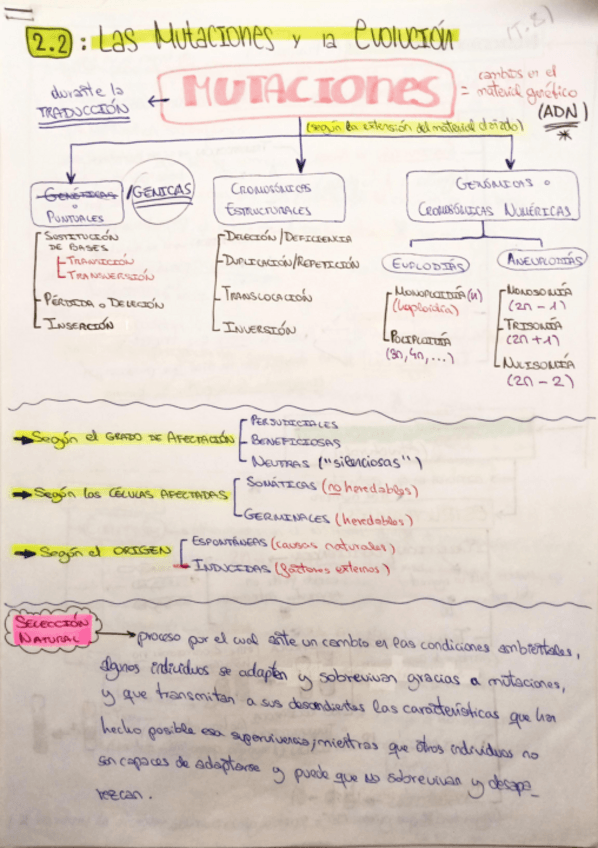 (T.2)
2.2: Las Mutaciones y la Evolución
durante la
TRADUCCIÓN
MUTACIONES
= cambios en el
material genético
(ADN)
*
(según la extensión del material dañado)
Genéticas / GÉNICAS
o
PUNTUALES
SUSTITUCIÓN
DE BASES
TRANSICIÓN
TRANSVERSIÓN
PÉRDIDA o DELECIÓN
INSERCIÓN
CROMOSÓMICAS
ESTRUCTURALES
DELECIÓN/DEFICIENCIA
DUPLICACIÓN/REPETICIÓN
TRANSLOCACIÓN
INVERSIÓN
GENÓMICAS o
CROMOSÓMICAS NUMÉRICAS
EUPLODÍAS
MONOPLOIDÍA (n)
(haploidía)
POLIPLOIDÍA
(3n, 4n, ...)
ANEUPLODÍAS
MONOSOMÍA
(2n - 1)
TRISOMÍA
(2n + 1)
NULISOMÍA
(2n - 2)
Según el GRADO DE AFECTACIÓN
PERJUDICIALES
BENEFICIOSAS
NEUTRAS ("silenciosas")
Según las CÉLULAS AFECTADAS
SOMÁTICAS (no heredables)
GERMINALES (heredables)
Según el ORIGEN
ESPONTÁNEAS (causas naturales)
INDUCIDAS (factores externos)
SELECCIÓN
NATURAL
proceso por el cual ante un cambio en las condiciones ambientales,
algunos individuos se adapten y sobrevivan gracias a mutaciones,
y que transmitan a sus descendientes las características que han
hecho posible esa supervivencia; mientras que otros individuos no
son capaces de adaptarse y puede que no sobrevivan y desapa_
rezcan.